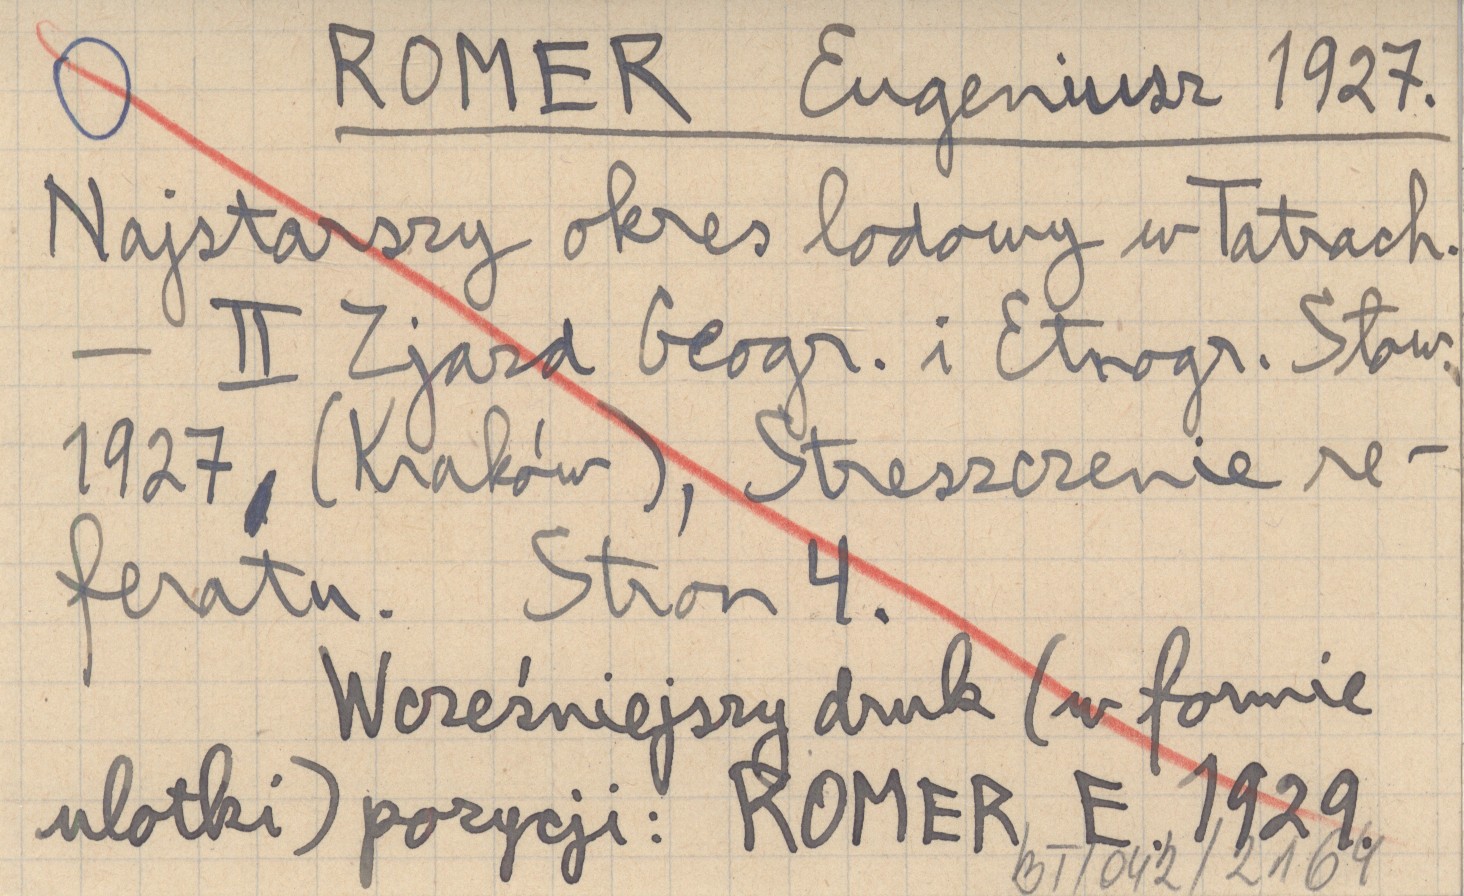 ROMER Eugeniusz 1927.
Najstarszy okres lodowy w Tatrach.
— II Zjazd Geogr. i Etnogr. Słow.
1927, (Kraków), Streszczenie re-
feratu. Stron 4.
Wcześniejszy druk (w formie
ulotki) pozycji: ROMER E. 1929.
BT/042/2164